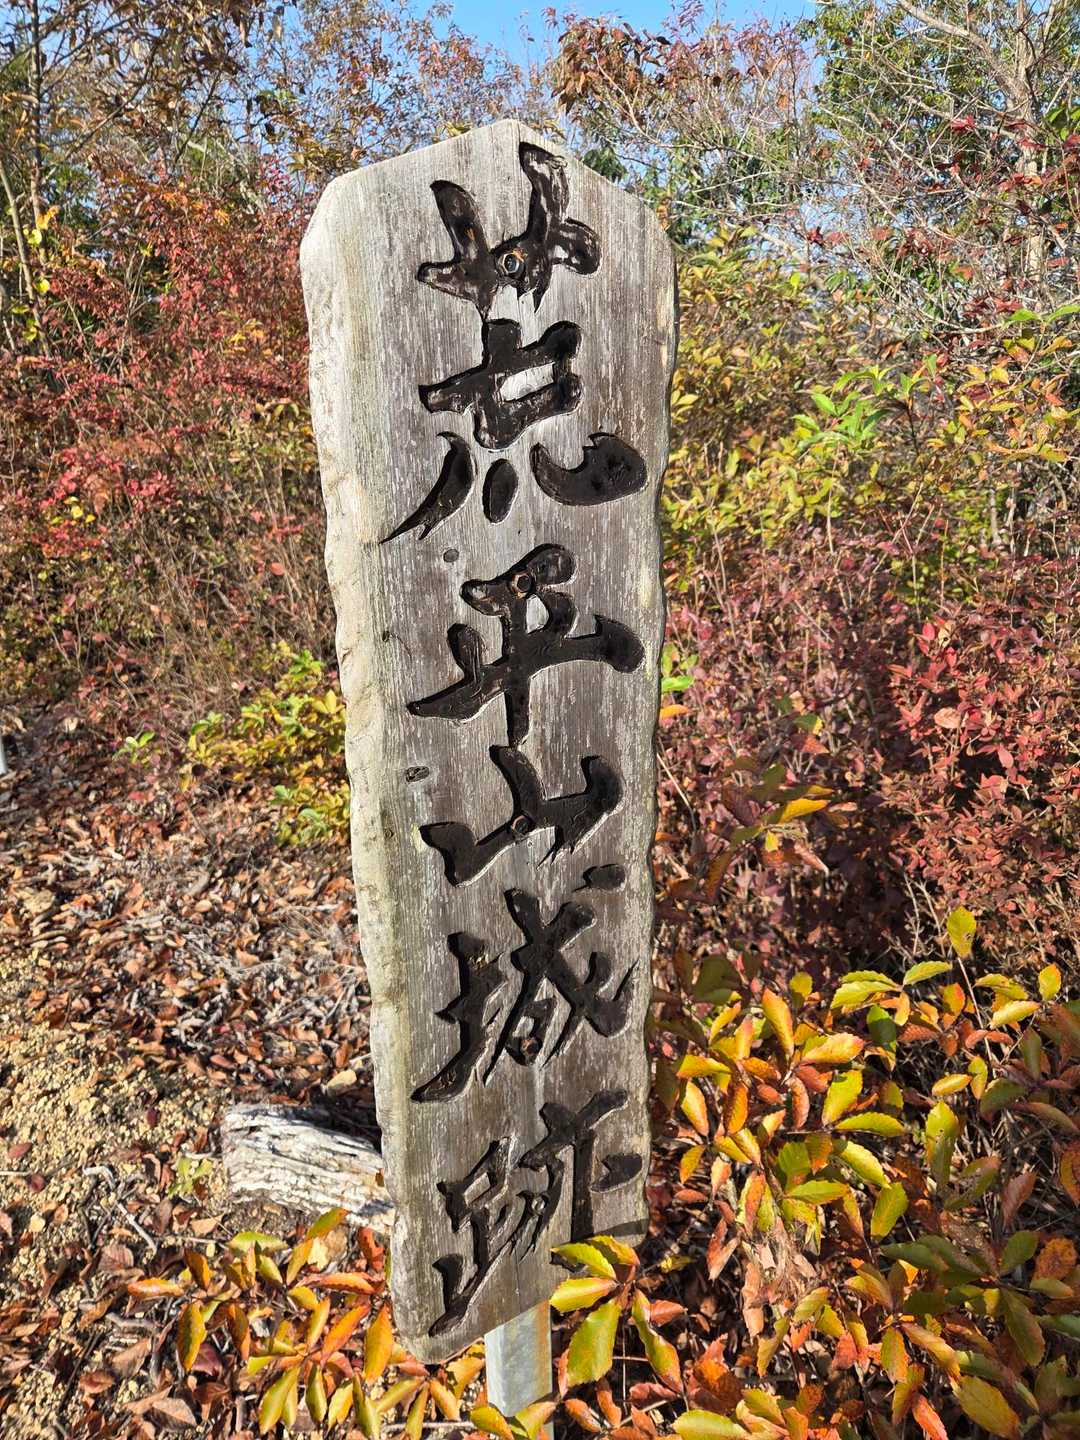 荒平山城跡